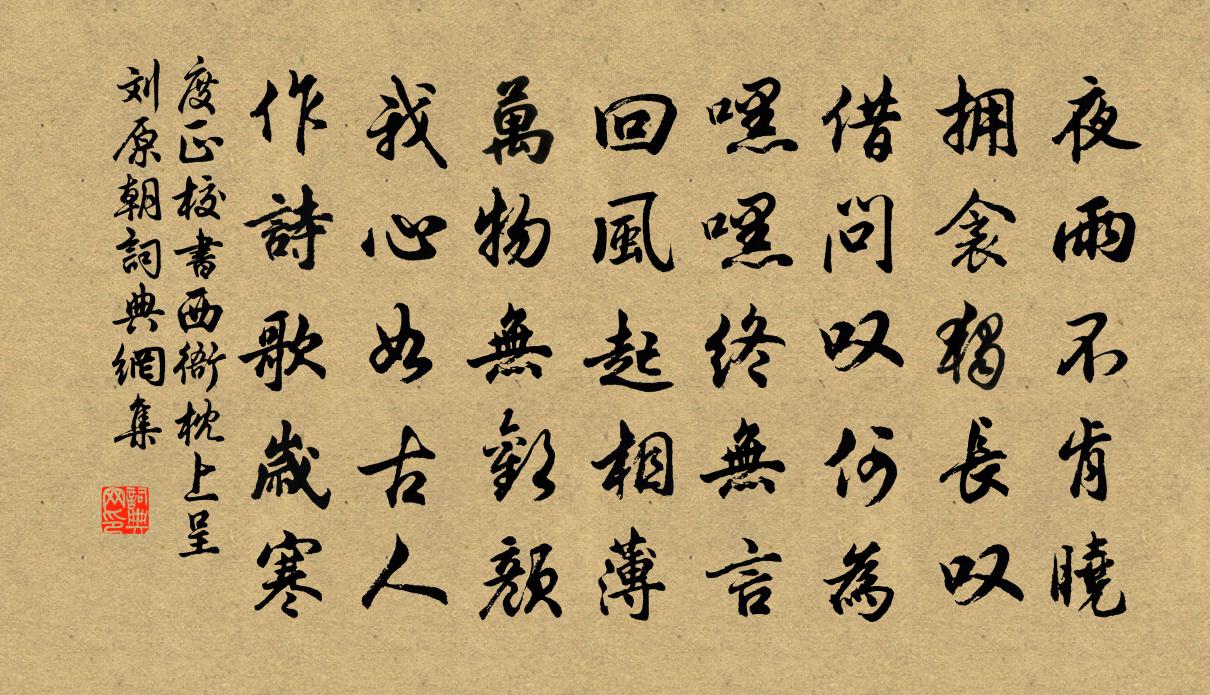 夜雨不肯曉
拥衾獨長叹
借問叹何為
嘿嘿終無言
回風起相薄
萬物無歡顏
我心如古人
作詩歌歲寒
度正校書西衙枕上呈
刘原朝詞典網集
詞典网印